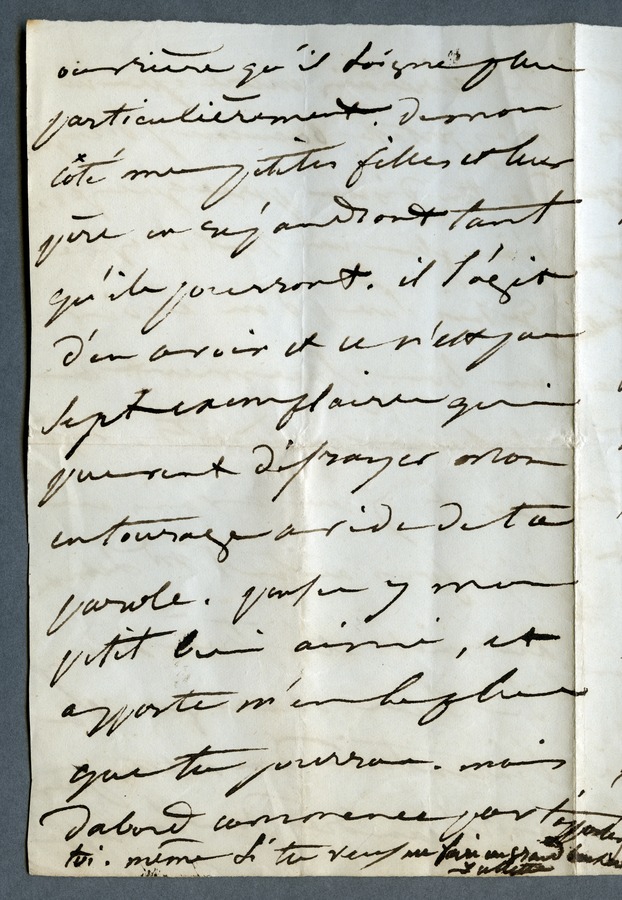 ouvrière qu'il soigne plus
particulièrement. De mon
côté mes petites filles et leur
père en répandront tant
qu'ils pourront. il s'agit
d'en avoir et ce n'est pas
sept exemplaires qui
peuvent défrayer mon
entourage avide de ta
parole. penses y mon
petit bien aimé, et
apporte m'en le plus
que tu pourras. mais
d'abord commence par t'apporter
toi. même si tu veux me faire un grand bonheur
Juliette